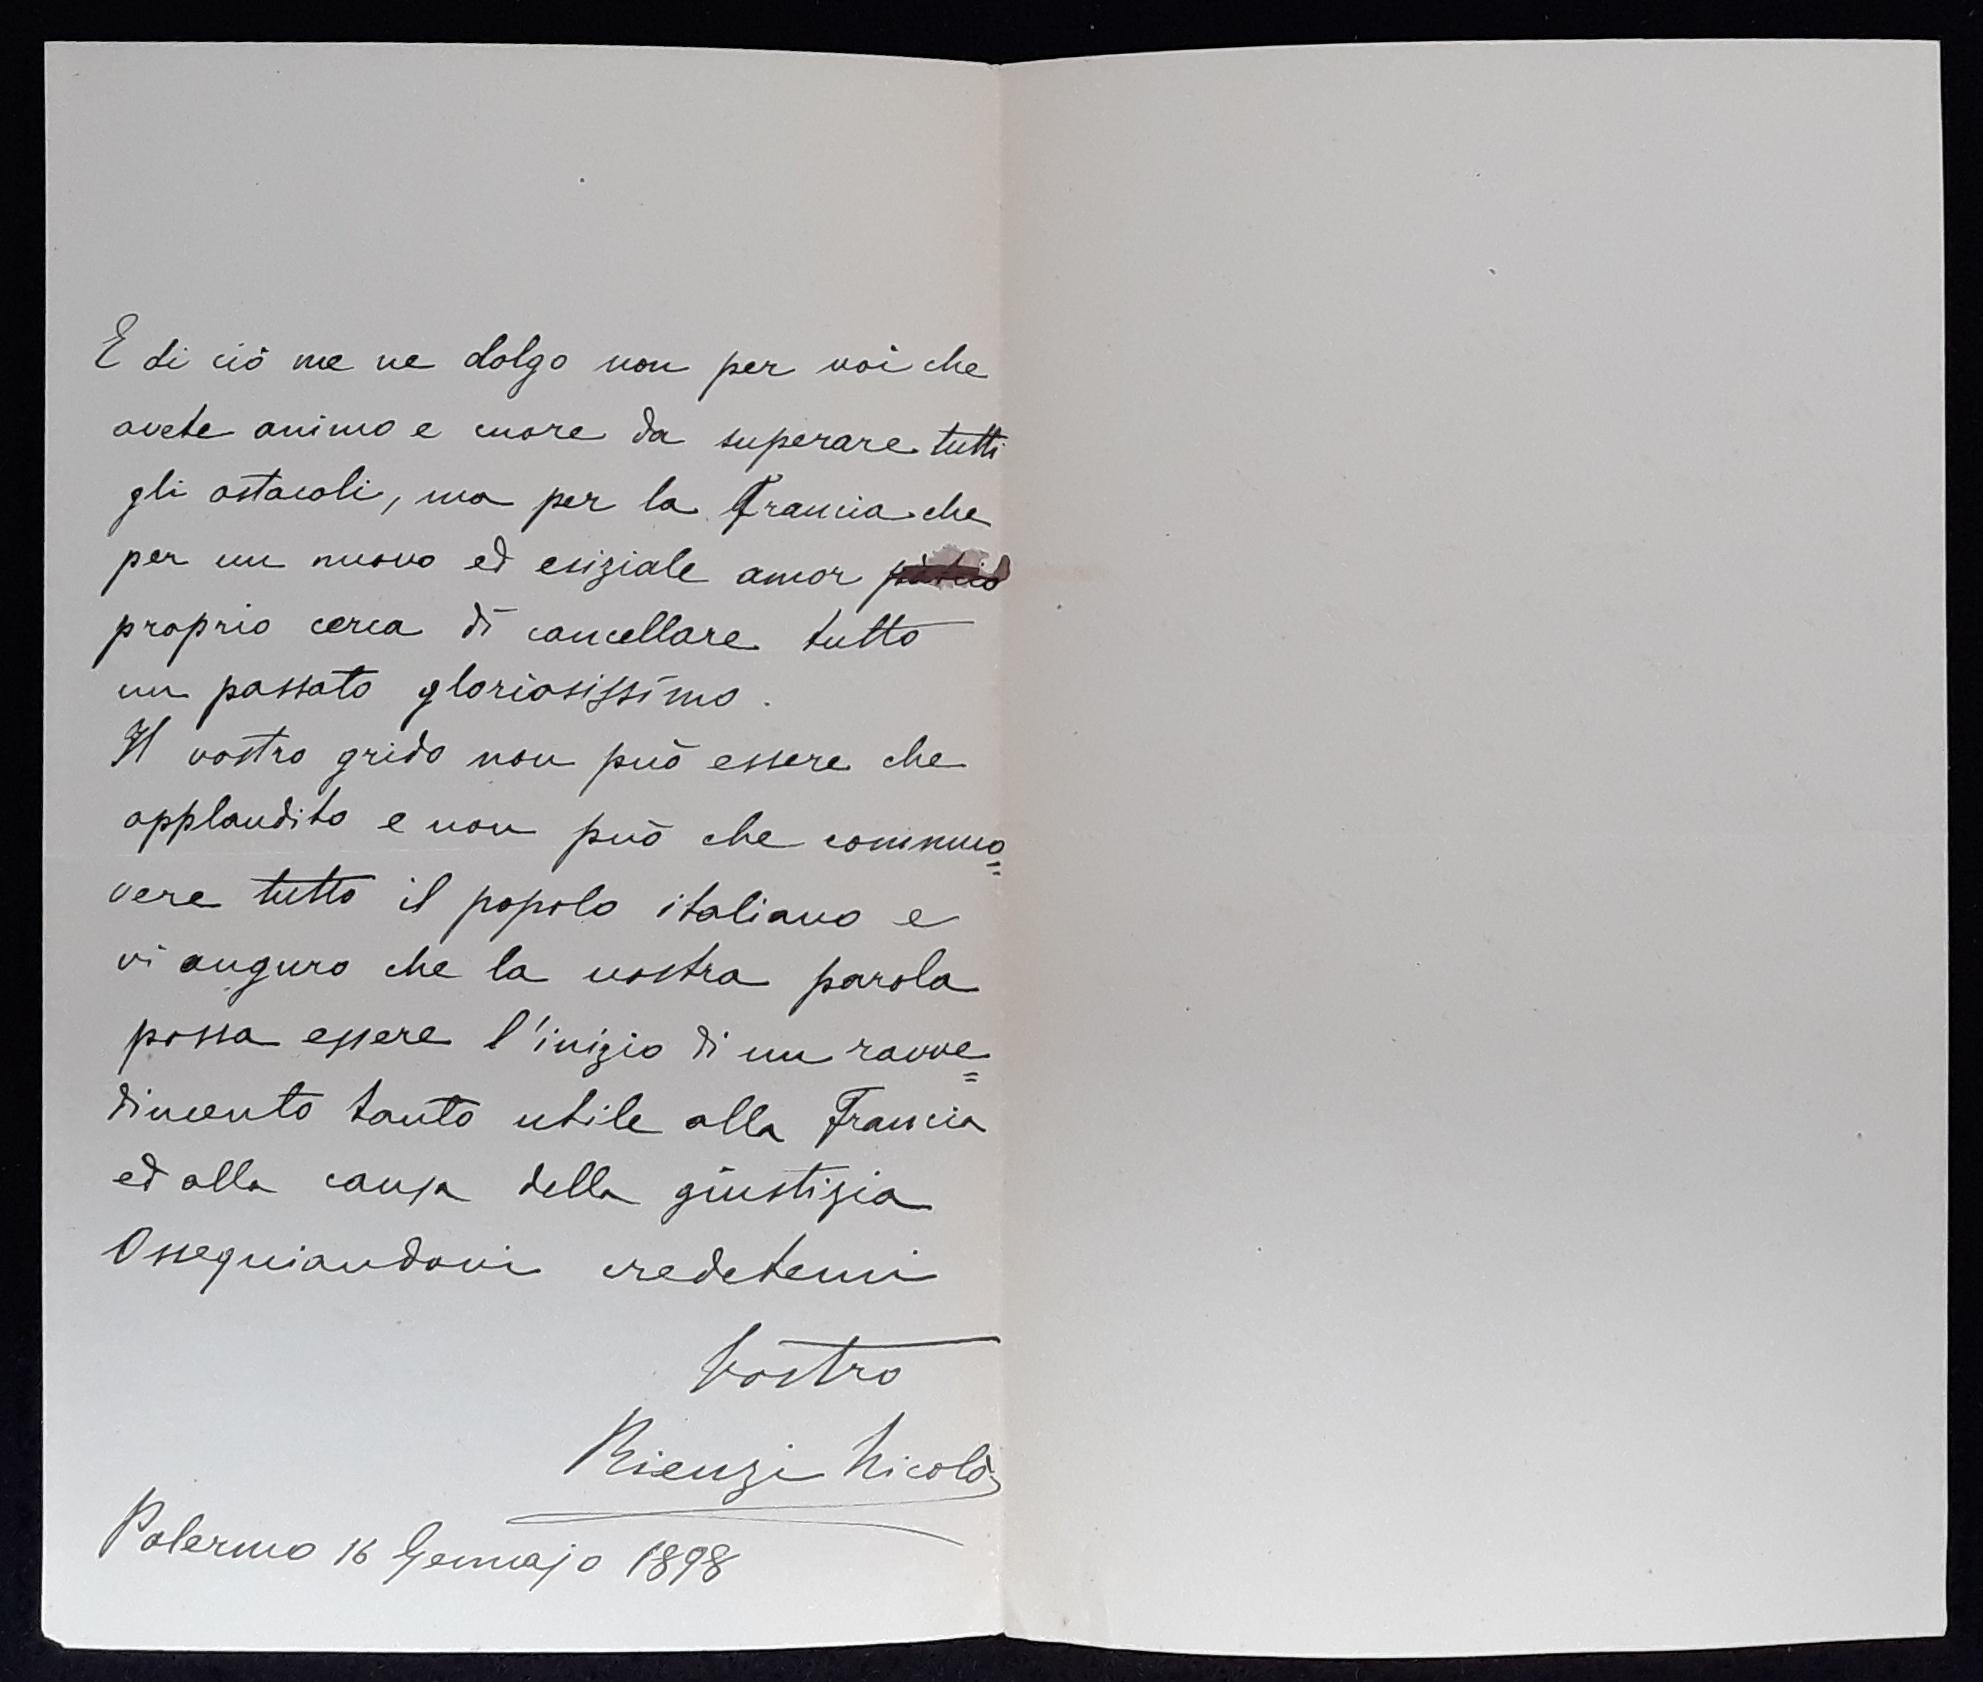 E di ciò me ne dolgo non per voi che
avete animo e cuore da superare tutti
gli ostacoli, ma per la Francia che
per un nuovo ed esiziale amor
proprio cerca di cancellare tutto
un passato gloriosissimo.
Il vostro grido non può essere che
applaudito e non può che commuo=
vere tutto il popolo italiano e
vi auguro che la vostra parola
possa essere l'inizio di un ravve=
dimento tanto utile alla Francia
ed alla causa della giustizia
Ossequiandovi credetemi
Vostro
Rienzi Nicolò
Palermo 16 Gennajo 1898